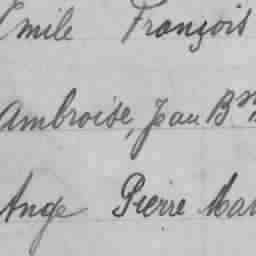 Emile François
Ambroise, Jean Bm
Ange Pierre Mar